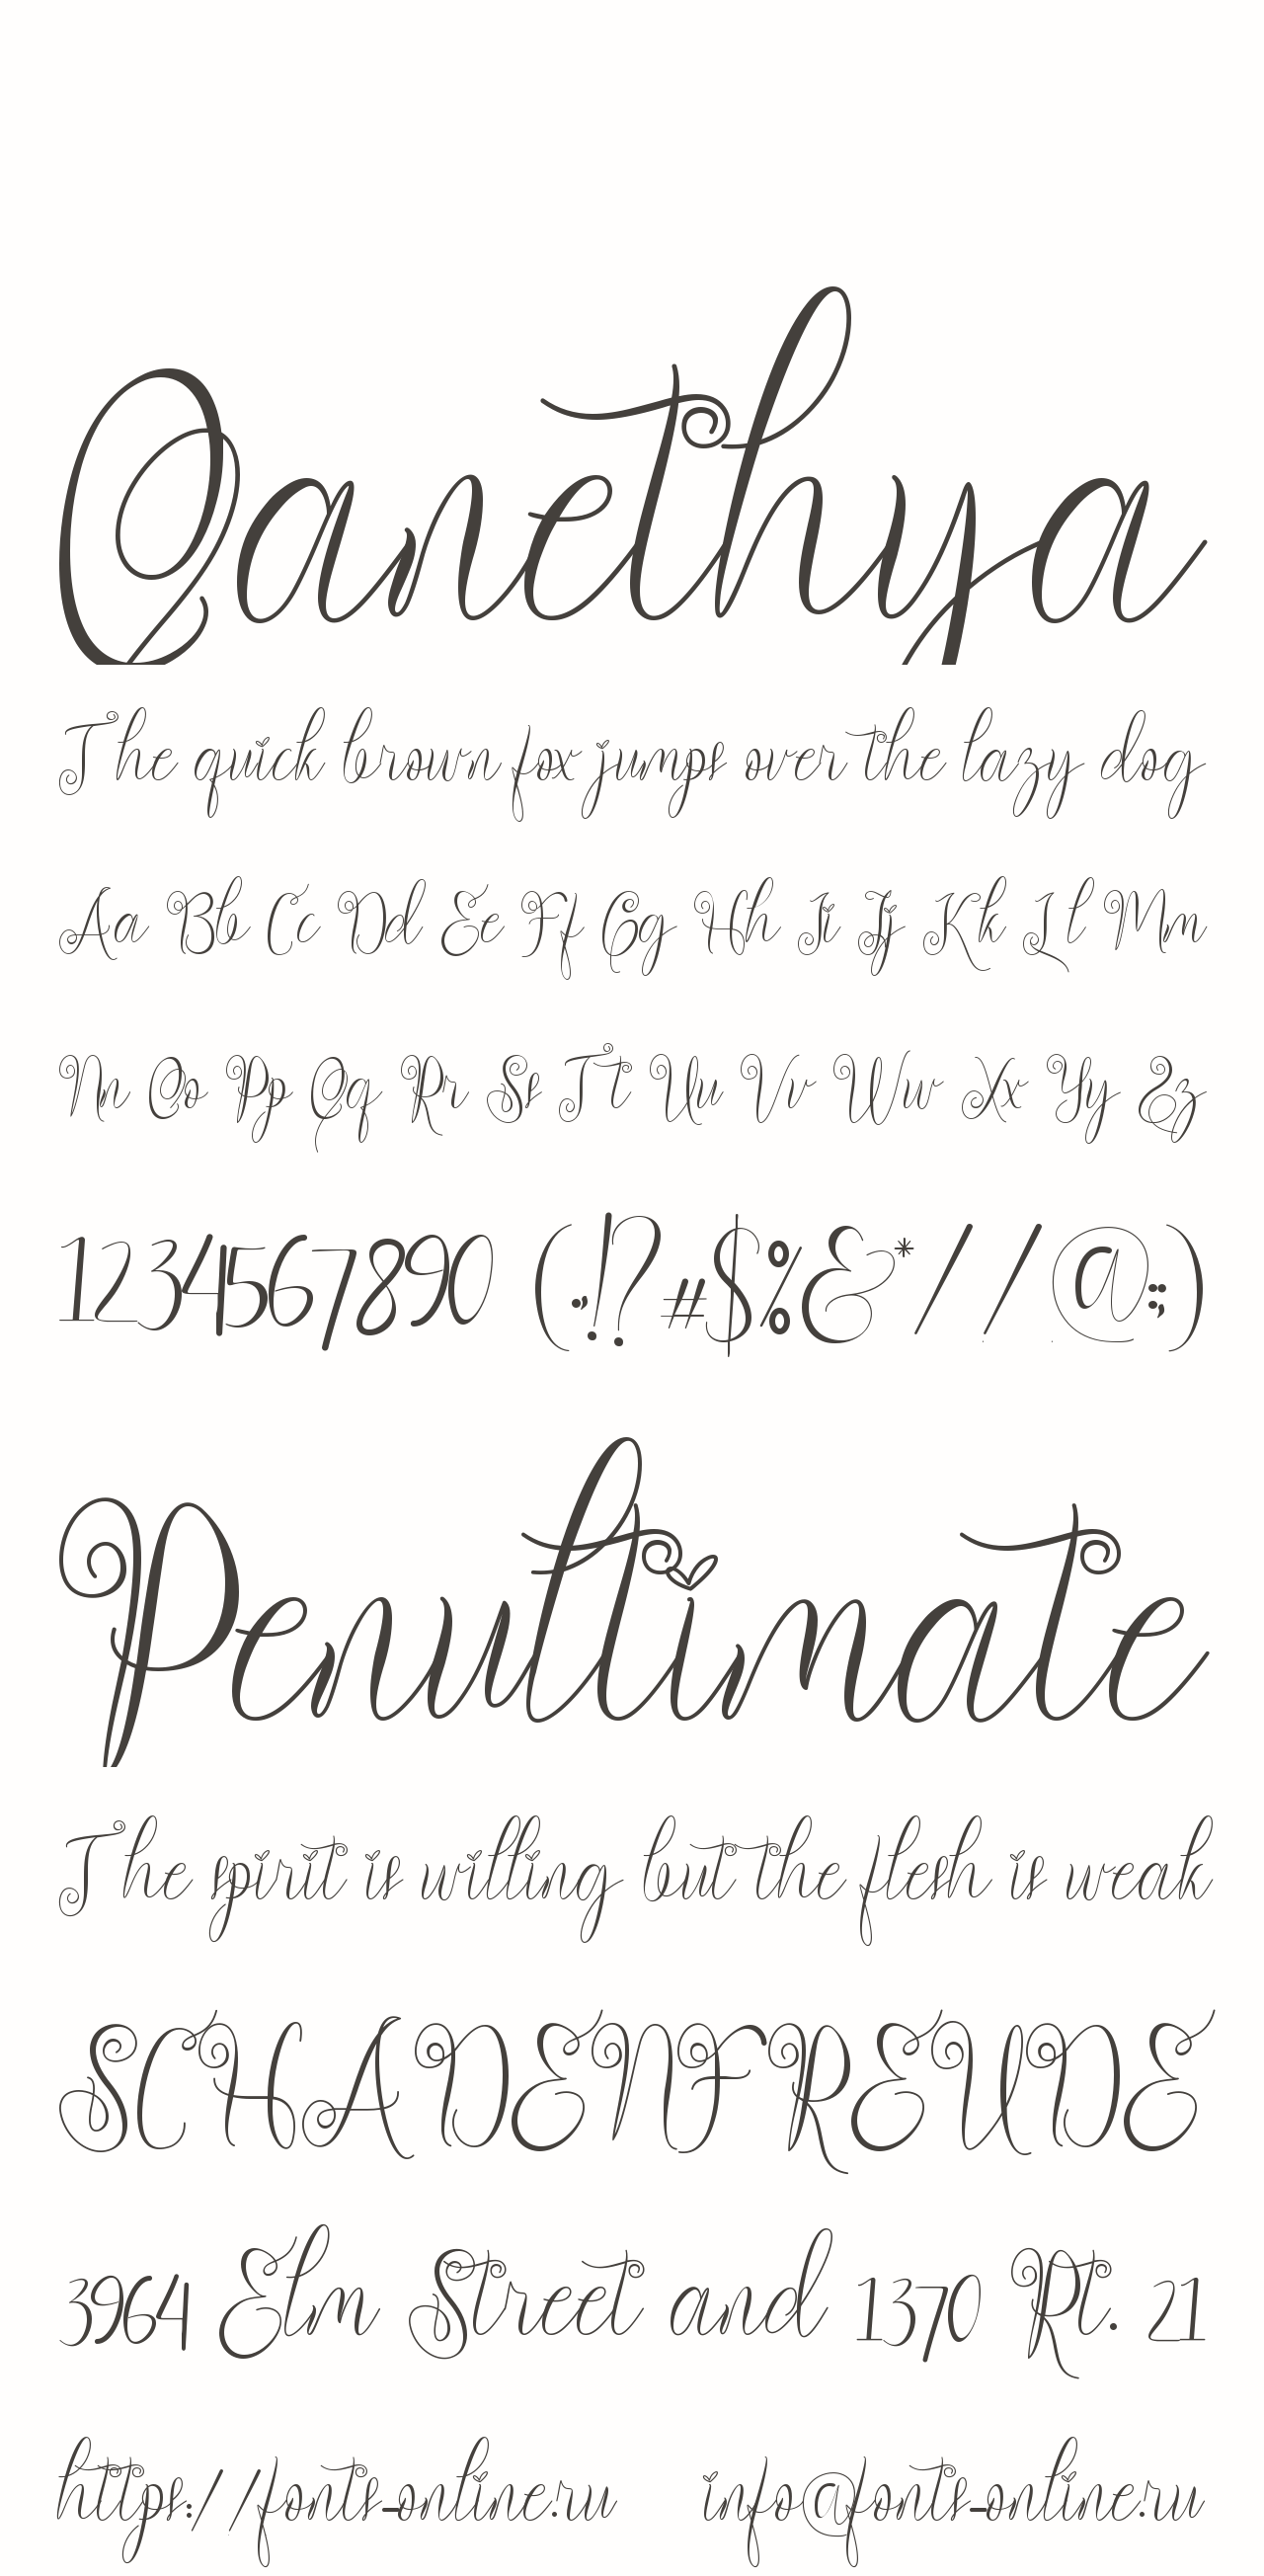 Qanethya
The quick brown fox jumps over the lazy dog
Aa Bb Cc Dd Ee Ff Gg Hh Ii Jj Kk Ll Mm
Nn Oo Pp Qq Rr Ss Tt Uu Vv Ww Xx Yy Zz
1234567890 (.,!?#$%&*//@:;)
Penultimate
The spirit is willing but the flesh is weak
SCHADENFREUDE
3964 Elm Street and 1370 Rt. 21
https://fonts-online.ru info@fonts-online.ru